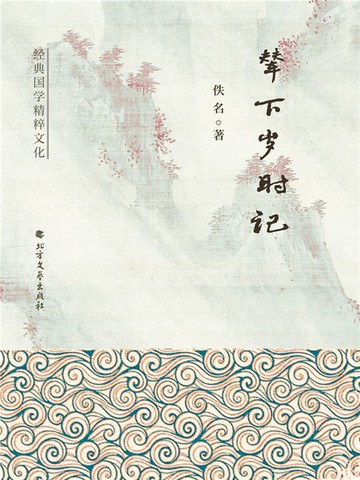 辇下岁时记
佚名◎著
经典国学精粹文化
北方文艺出版社